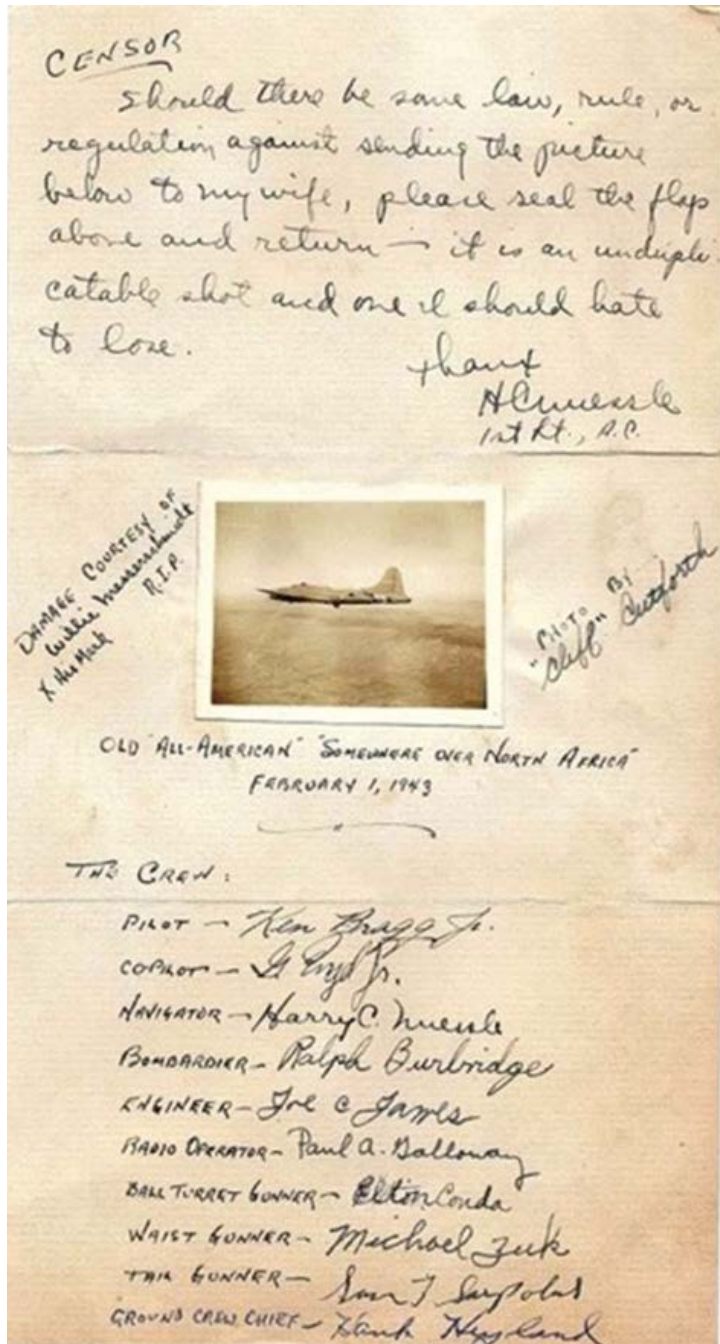 CENSOR
Should there be some law, rule, or
regulation against sending the picture
below to my wife, please seal the flap
above and return — it is an undupli-
catable shot and one I should hate
to lose.
Thanx
HCNuessle
1st Lt., A.C.
DAMAGE COURTESY OF
Willie Messerschmidt
R.I.P.
X His Mark
"PHOTO BY
"Cliff" Cutforth
OLD "ALL-AMERICAN" "SOMEWHERE OVER NORTH AFRICA"
FEBRUARY 1, 1943
THE CREW:
PILOT — Ken Bragg Jr.
COPILOT — G Jr.
NAVIGATOR — Harry C. Nuessle
BOMBARDIER — Ralph Burbridge
ENGINEER — Joe C James
RADIO OPERATOR — Paul A. Galloway
BALL TURRET GUNNER — Elton Conda
WAIST GUNNER — Michael Zuk
TAIL GUNNER — Sam T
GROUND CREW CHIEF — Hank Hyland